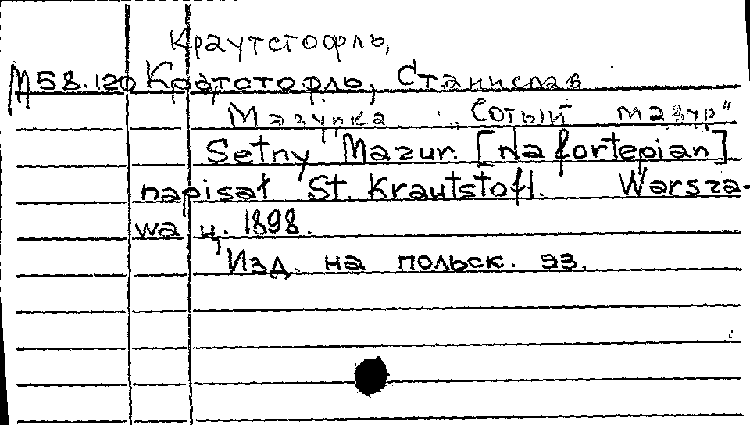 Краутстофль,
М58.120 Кратсторль, Станислав
Мазурка „Сотый мазур"
Setny Mazur. [na fortepian]
napisał St. Krautstofl. Warsza-
wa ц. 1898.
Изд. на польск. яз.